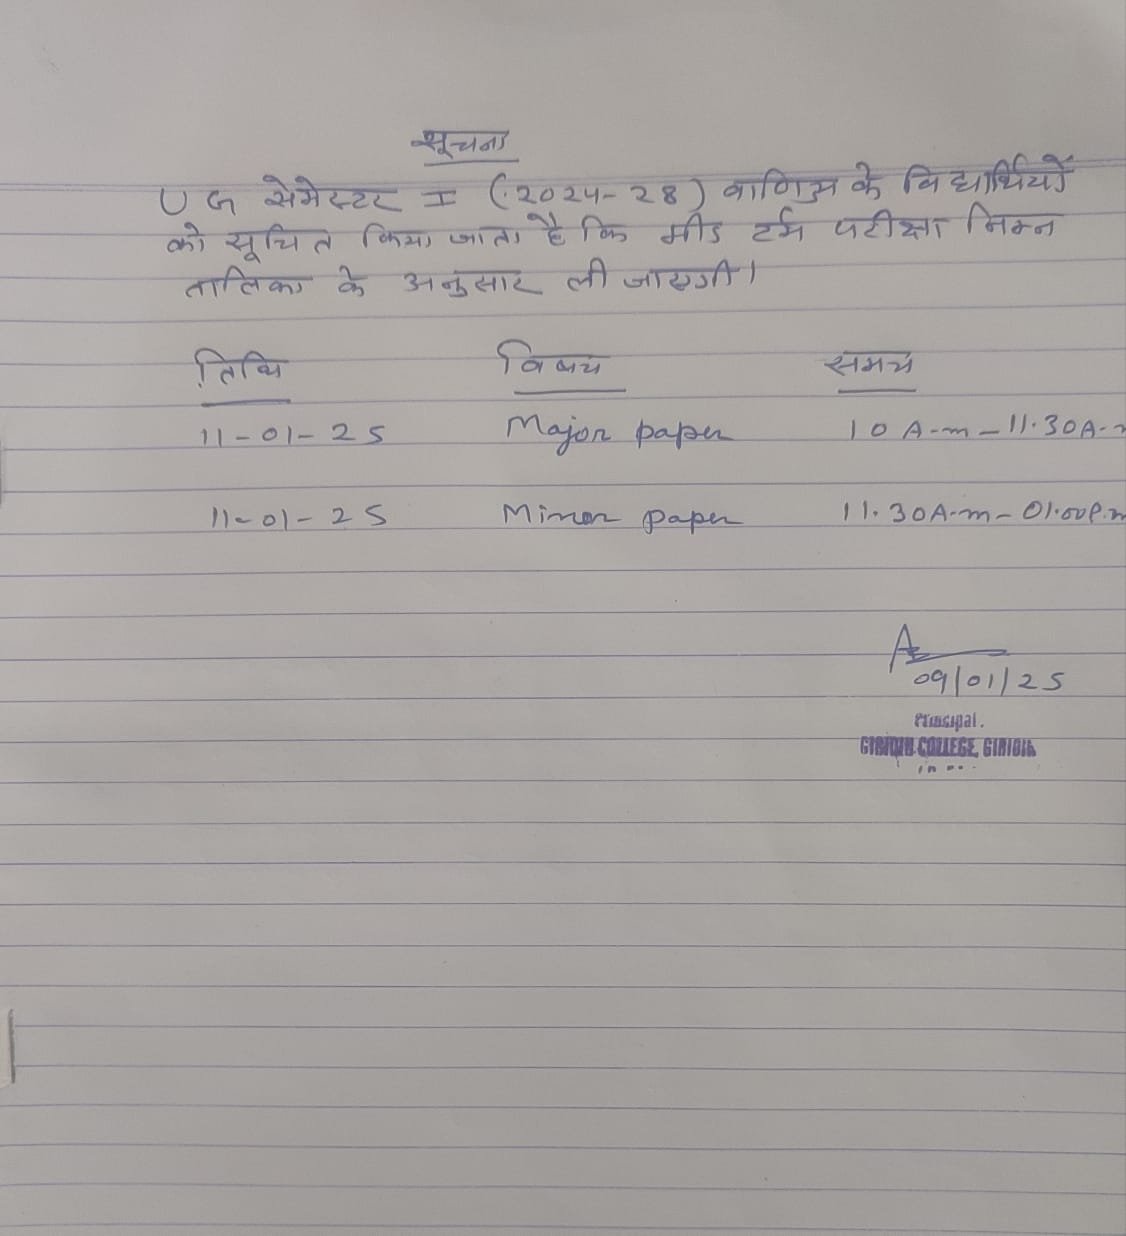 सूचना
UG सेमेस्टर I (2024-28) वाणिज्य के विद्यार्थियों
को सूचित किया जाता है कि मीड टर्म परीक्षा निम्न
तालिका के अनुसार ली जाएगी।
तिथि विषय समय
11-01-25 Major paper 10 A.m - 11.30 A.
11-01-25 Minor paper 11.30 A.m - 01.00 P.m
09/01/25
Principal.
COLLEGE,